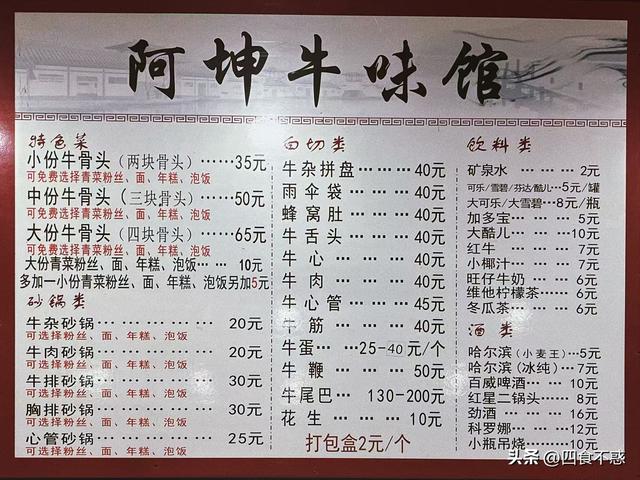 阿坤牛味馆
特色菜
小份牛骨头(两块骨头)……35元
可免费选择青菜粉丝、面、年糕、泡饭
中份牛骨头(三块骨头)……50元
可免费选择青菜粉丝、面、年糕、泡饭
大份牛骨头(四块骨头)……65元
可免费选择青菜粉丝、面、年糕、泡饭
大份青菜粉丝、面、年糕、泡饭… 10元
多加一小份青菜粉丝、面、年糕、泡饭另加5元
砂锅类
牛杂砂锅… … … … 20元
可选择粉丝、面、年糕、泡饭
牛肉砂锅… … … … 20元
可选择粉丝、面、年糕、泡饭
牛排砂锅… … … … 30元
可选择粉丝、面、年糕、泡饭
胸排砂锅… … … … 30元
可选择粉丝、面、年糕、泡饭
心管砂锅… … … … 25元
可选择粉丝、面、年糕、泡饭
白切类
牛杂拼盘… … … 40元
雨伞袋 … … … 40元
蜂窝肚 … … … 40元
牛舌头 … … … 40元
牛心 … … … 40元
牛肉 … … … 40元
牛心管 … … … 45元
牛筋 … … … 40元
牛蛋 … …25-40元/个
牛鞭 … … … 50元
牛尾巴 … 130-200元
花生 … … … 10元
打包盒2元/个
饮料类
矿泉水 … … … 2元
可乐/雪碧/芬达/酷儿…5元/罐
大可乐/大雪碧…8元/瓶
加多宝 … … … 5元
大酷儿… … … 10元
红牛 … … … 7元
小椰汁… … … 7元
旺仔牛奶 … … 6元
维他柠檬茶… … 6元
冬瓜茶… … … 6元
酒类
哈尔滨(小麦王)…5元
哈尔滨(冰纯)…7元
百威啤酒… … 10元
红星二锅头… … 8元
劲酒 … … … 16元
科罗娜… … … 12元
小瓶吊烧… … 10元
头条 @四食不惑